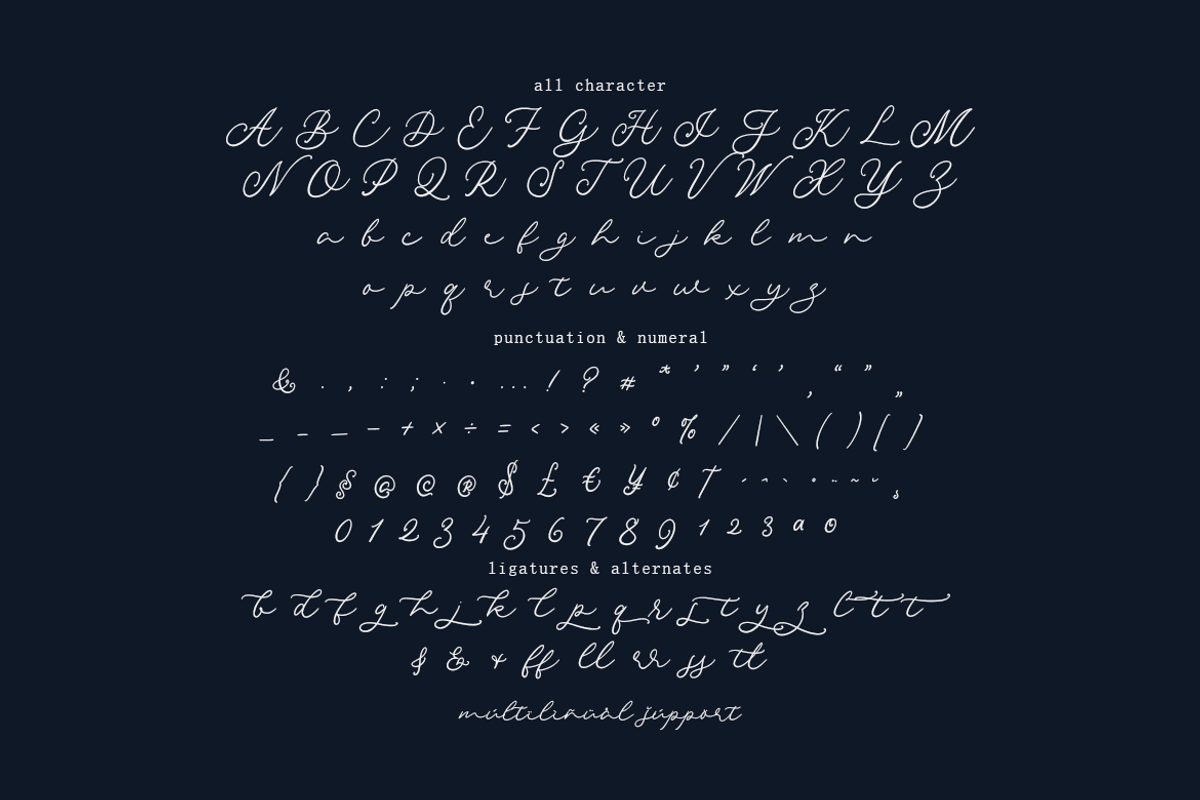 all character
A B C D E F G H I J K L M
N O P Q R S T U V W X Y Z
a b c d e f g h i j k l m n
o p q r s t u v w x y z
punctuation & numeral
& . , : ; · • ... ! ? # * ’ ” ‘ ’ ‚ “ ” „
_ - — – + × ÷ = < > « » ° % / | \ ( ) [ ]
{ } § @ © ® $ £ € ¥ ¢ † ´ ˆ ` ˙ ¨ ˜ ˘ ¸
0 1 2 3 4 5 6 7 8 9 ¹ ² ³ ª º
ligatures & alternates
b d f g h j k l p q r s t y z l t t
& & + ff ll rr ss tt
múltilíñüàl şúppört